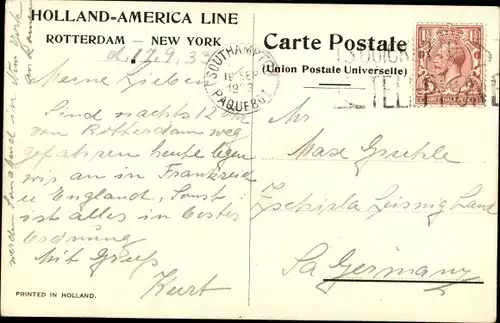 HOLLAND-AMERICA LINE
ROTTERDAM — NEW YORK
d. 17. 9. 33
Meine Lieben
Sind nachts 12 Uhr
von Rotterdam weg
gefahren heute legen
wir an in Frankreich
u England, Sonst
ist alles in bester
Ordnung
Mit Gruß
Kurt
PRINTED IN HOLLAND.
werden Sonnabend in New York
SOUTHAMPTON
18 SE
PAQUEBOT
Carte Postale
(Union Postale Universelle)
Hr
Max
Sa Germany